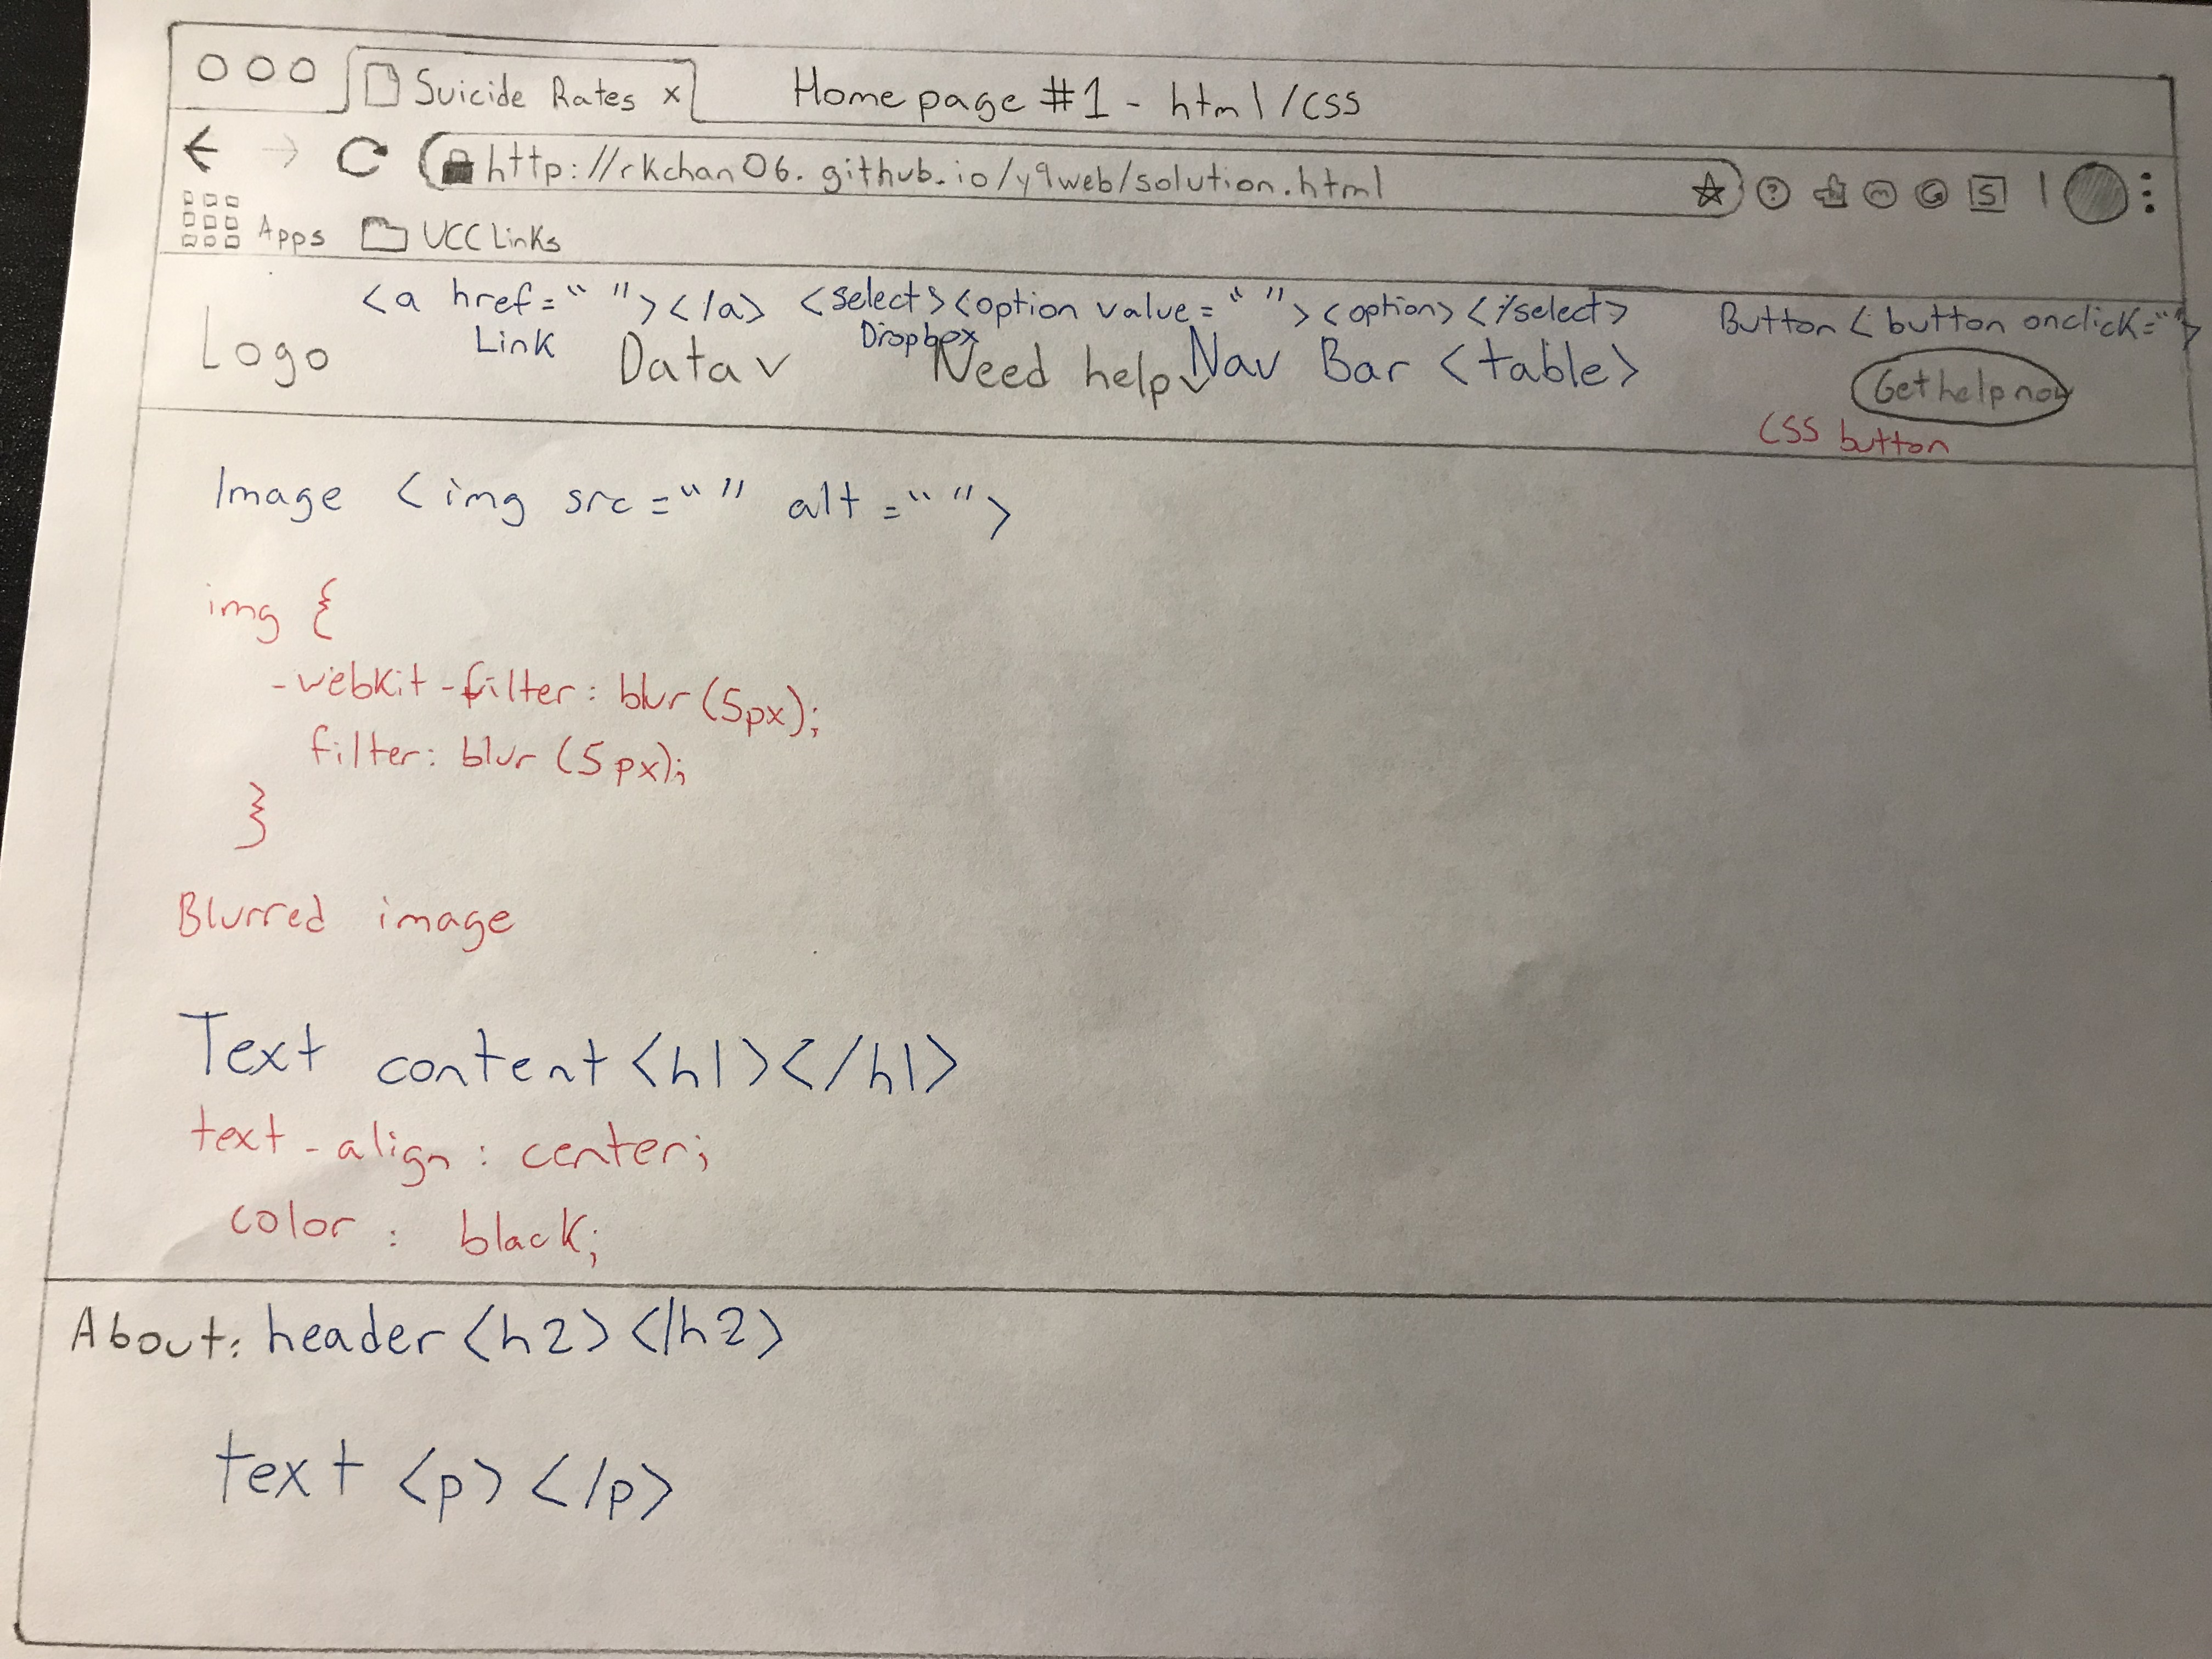 Suicide Rates x
Homepage #1 - html/css
http://rkchan06.github.io/y9web/solution.html
? m G S
Apps VCC Links
<a href=“ ”></a> <select><option value=“ ”><option></select>
Button <button onclick=“”>
Link
Dropbox
Logo Data v Need help v Nav Bar <table>
Get help now
CSS button
Image <img src=“ ” alt=“ ”>
img {
-webkit-filter: blur(5px);
filter: blur(5px);
}
Blurred image
Text content <h1></h1>
text-align: center;
color: black;
About: header <h2></h2>
text <p></p>